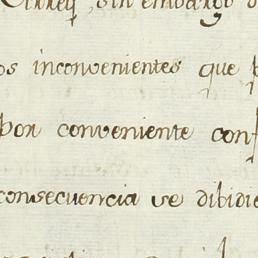 sin embargo
os inconvenientes que
por conveniente con
consecuencia se dibidie